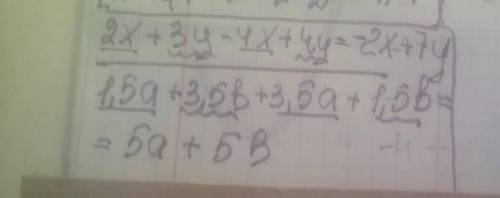 2x + 3y - 4x + 4y = -2x + 7y
1,5a + 3,5в + 3,5a + 1,5в =
= 5a + 5в